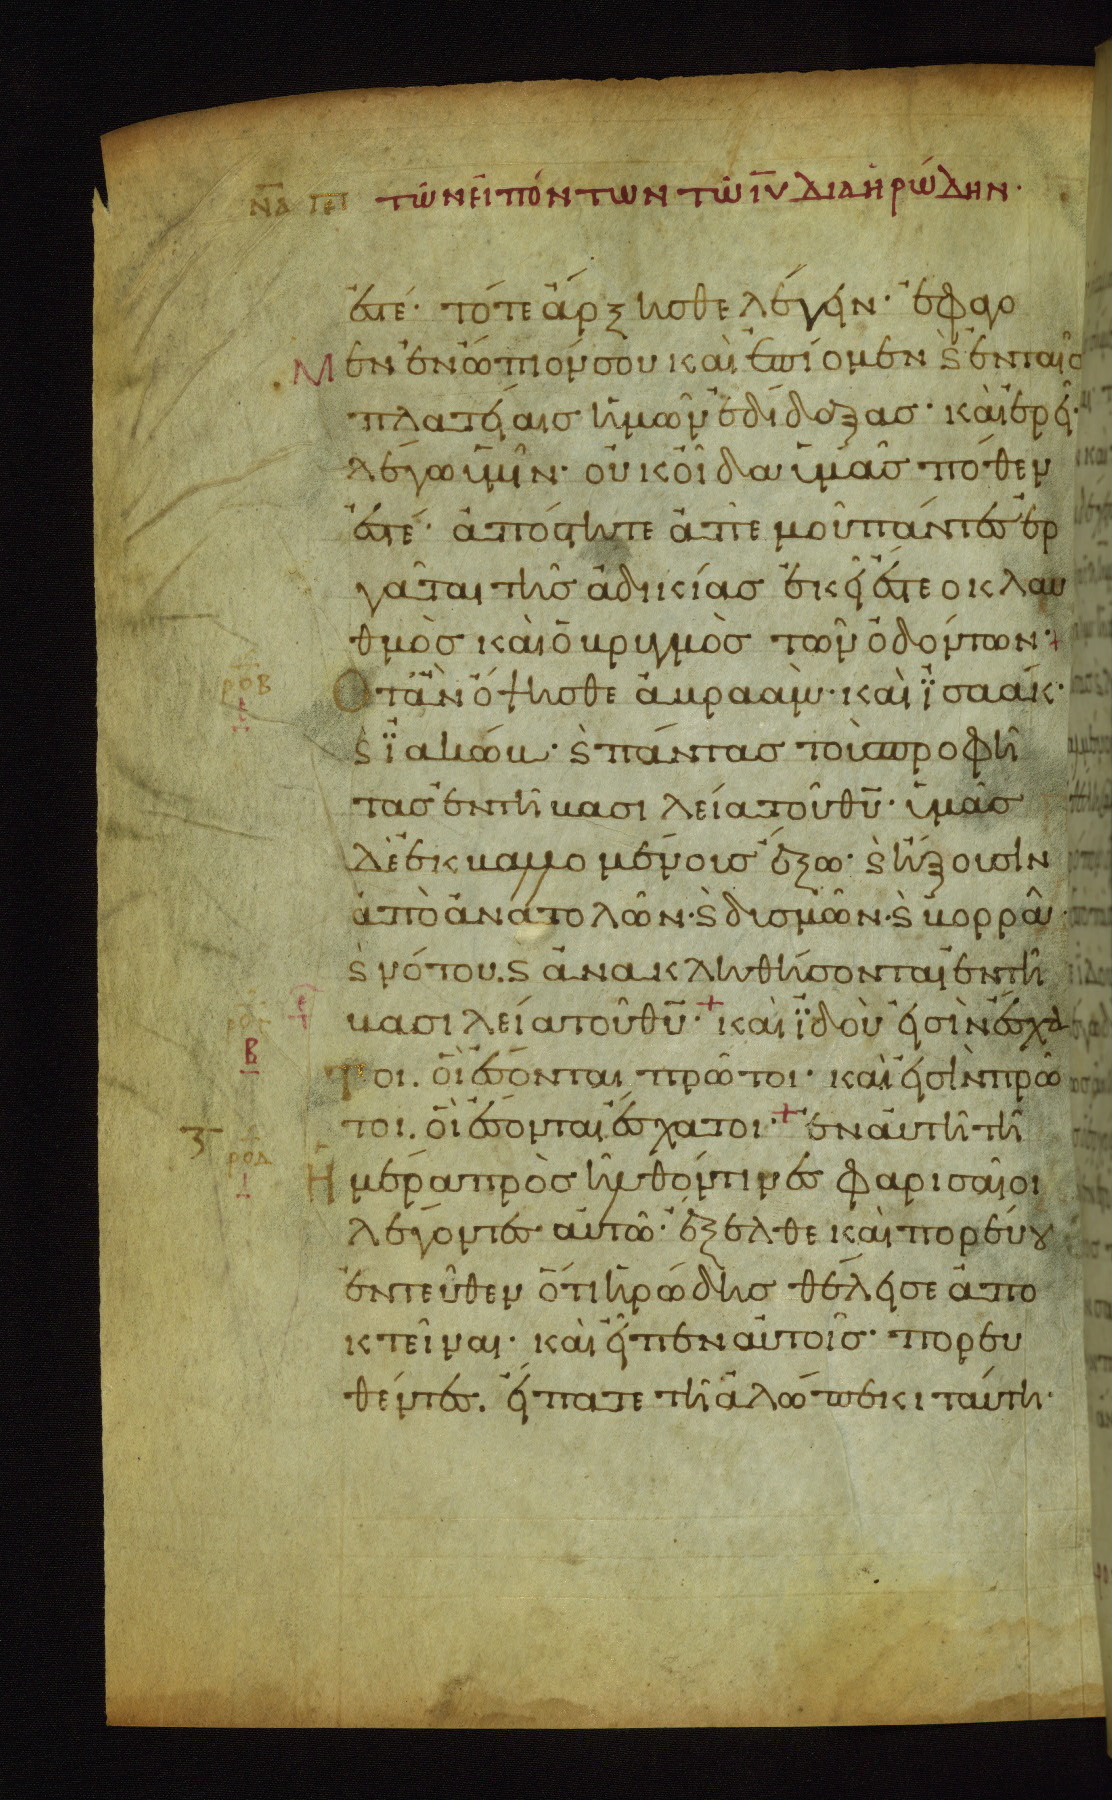 ν̅δ̅ πε τῶν εἰπόντων τῶ ι̅υ̅ διὰ ἡρώδην·
ἐστέ· τότε ἄρξησθε λέγειν· ἐφάγο
μεν ἐνώπιόν σου καὶ ἐπίομεν ϗ ἐν ταῖσ
πλατείαισ ἡμῶν ἐδίδαξασ· καὶ ἐρεῖ·
λέγω ὑμῖν· οὐκ οἶδα ὑμᾶσ πόθεν
ἐστέ· ἀπόστητε ἀπ' ἐμοῦ πάντεσ ἐρ
γάται τῆσ ἀδικίασ ἐκεῖ ἔσται ὁ κλαυ
θμὸσ καὶ ὁ βρυγμὸσ τῶν ὀδόντων·+
Ὅταν ὄψησθε ἀβραὰμ· καὶ ϊσαάκ·
ϗ ϊακώβ· ϗ πάντασ τοὺσ προφή
τασ ἐν τῆ βασιλεία τοῦ θ̅υ̅· ὑμᾶσ
δὲ ἐκβαλλομένουσ ἔξω· ϗ ἥξουσιν
ἀπὸ ἀνατολῶν· ϗ δυσμῶν· ϗ βορρᾶ·
ϗ νότου. ϗ ἀνακληθήσονται ἐν τῆ
βασιλεία τοῦ θ̅υ̅·+ καὶ ϊδοὺ εἰσὶν ἔσχα
τοι. οἳ ἔσονται πρῶτοι· καὶ εἰσὶν πρῶ
τοι. οἳ ἔσονται ἔσχατοι·+ ἐν αὐτῆ τῆ
ἡμέρα προσῆλθόν τινεσ φαρισαῖοι
λέγοντεσ αὐτῶ· ἔξελθε καὶ πορεύου
ἐντεῦθεν ὅτι ἡρώδησ θέλει σε ἀπο
κτεῖναι· καὶ εἶπεν αὐτοῖσ· πορευ
θέντεσ. εἴπατε τῆ ἀλώπεκι ταύτη·
ροβ
ε
ρογ
β
ροδ
ι